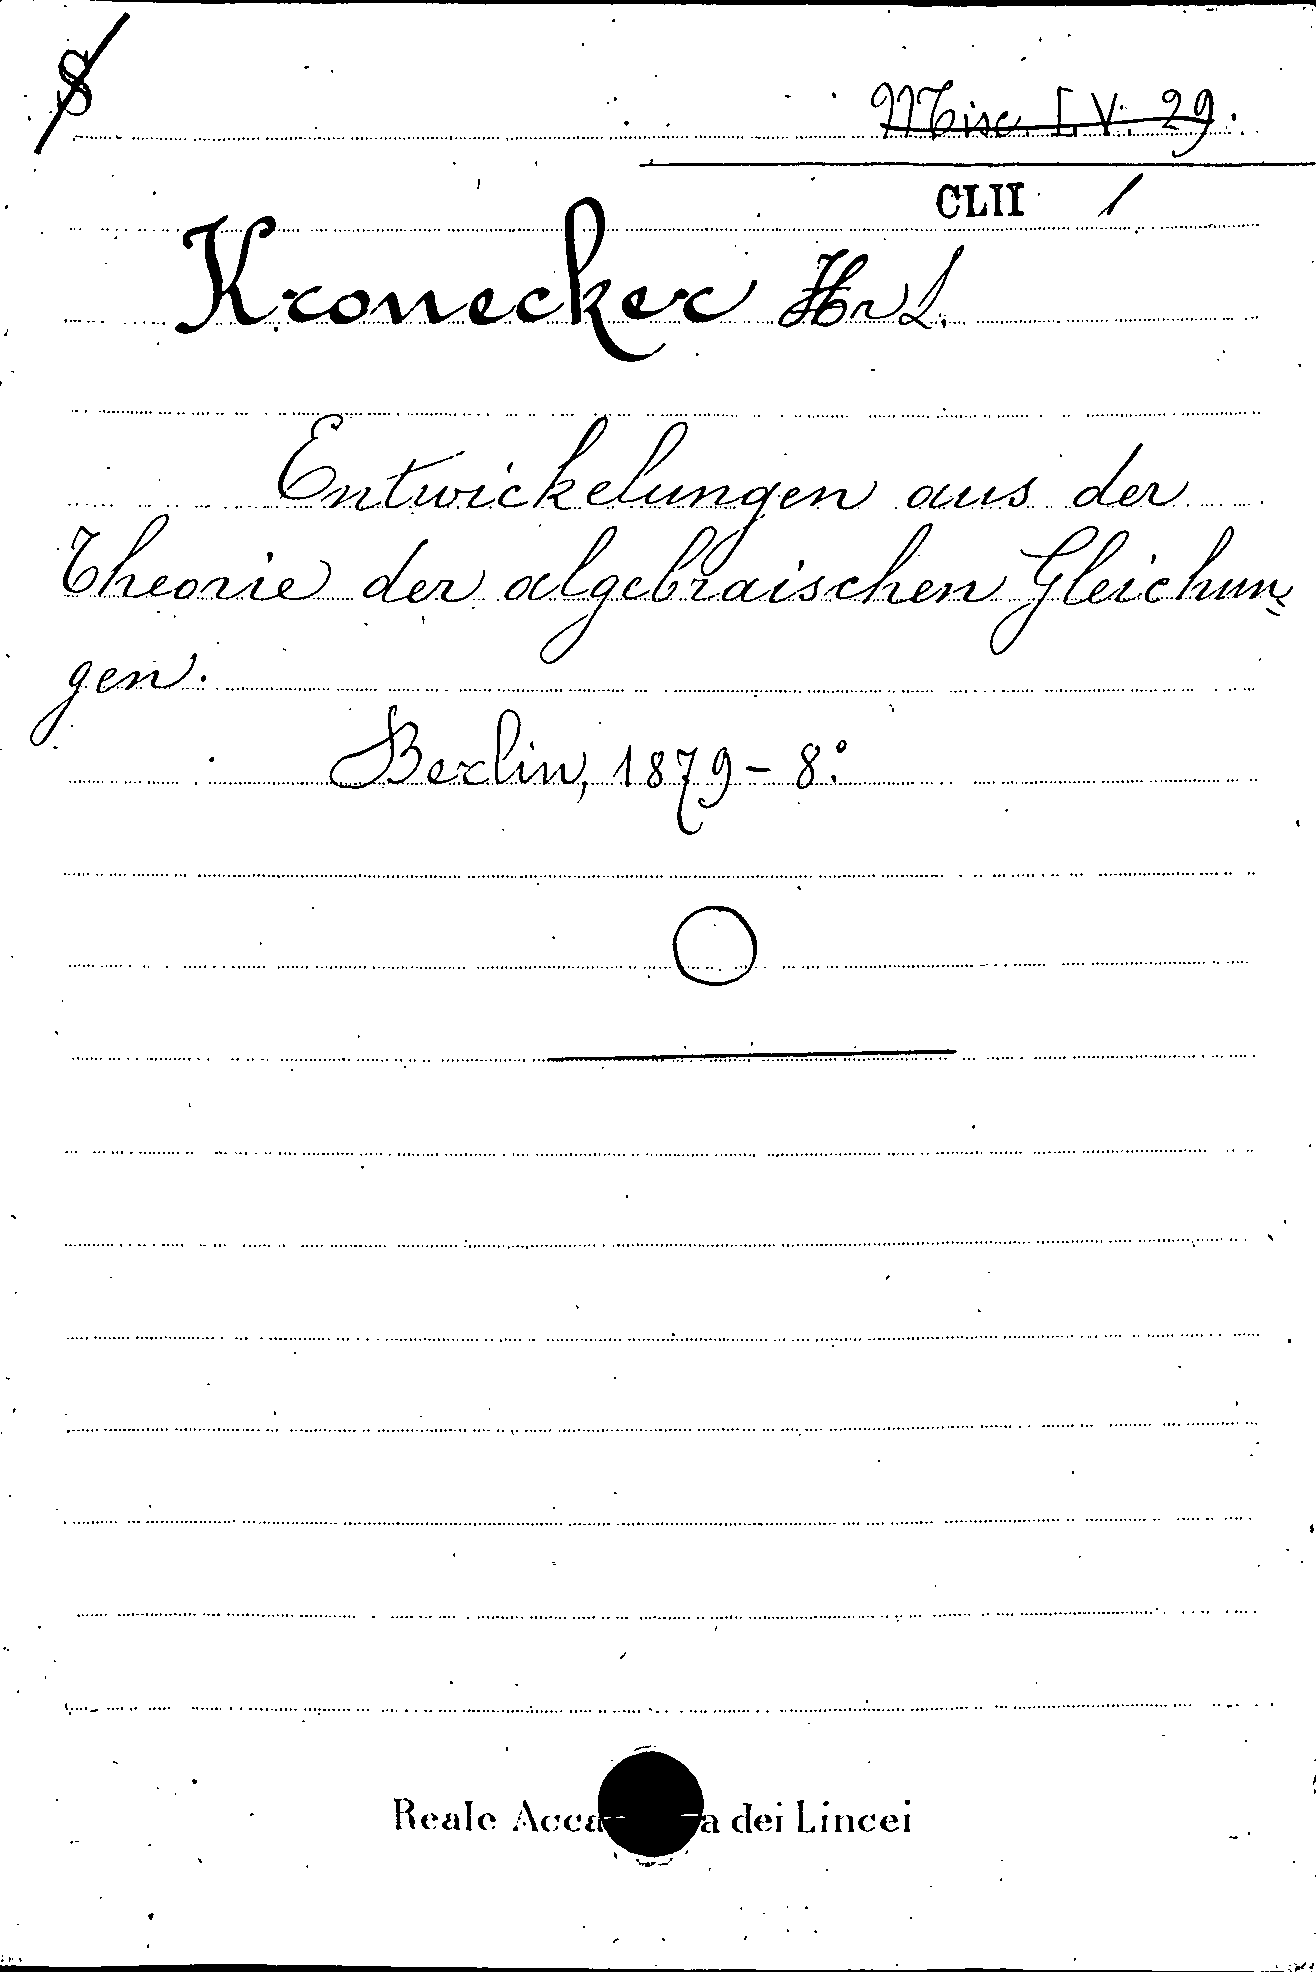 S
Misc. I. V. 29.
CLII 1
Kronecker Hr L.
Entwickelungen aus der
Theorie der algebraischen Gleichun=
gen.
Berlin, 1879 - 8.°
Reale Acca a dei Lincei